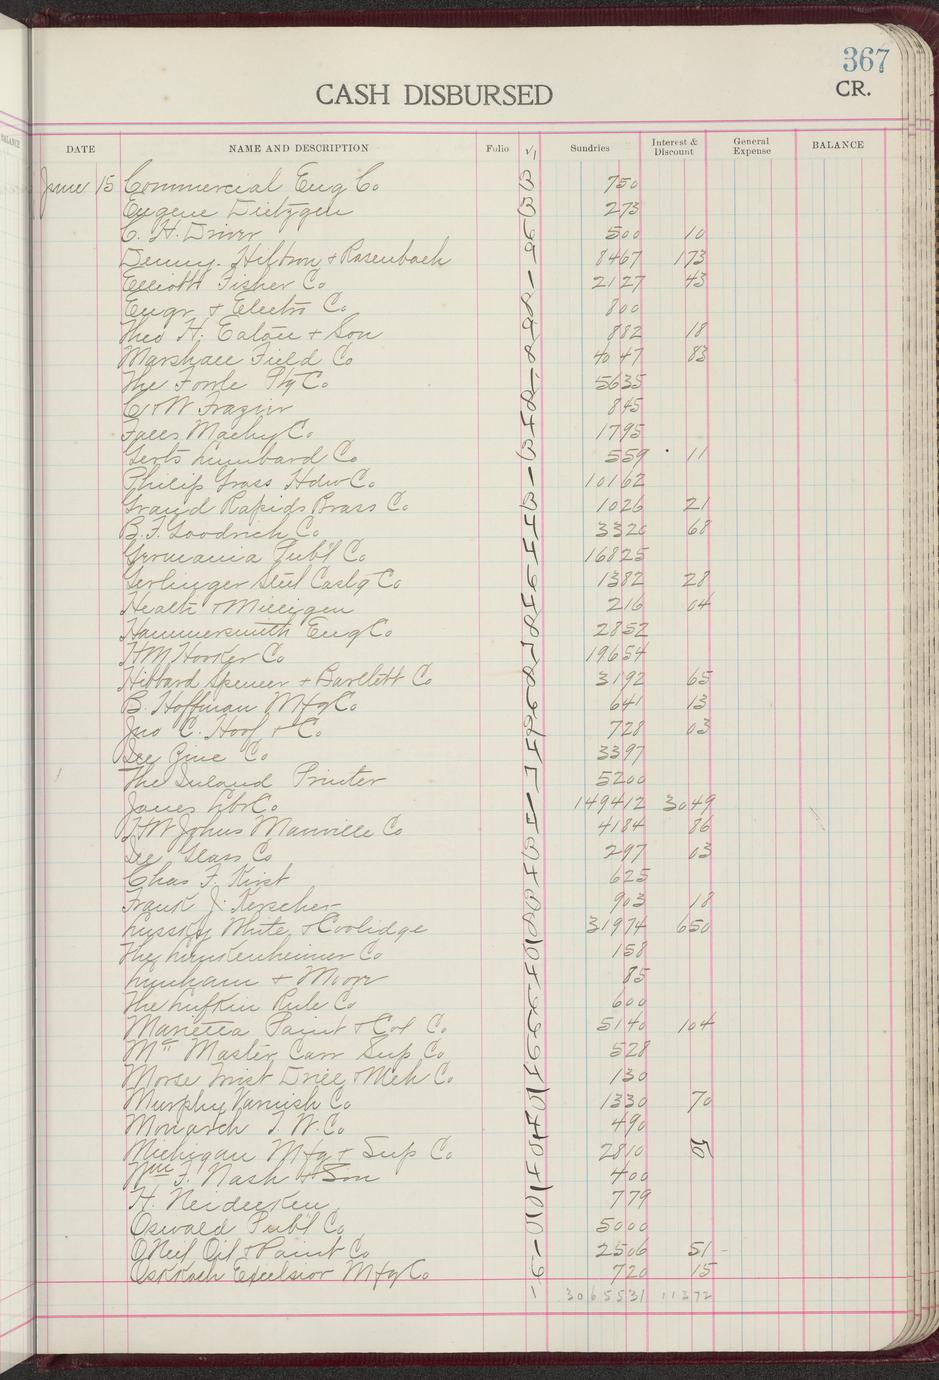 367
CR.
CASH DISBURSED
DATE NAME AND DESCRIPTION Folio √ Sundries Interest & Discount General Expense BALANCE
June 15 Commercial Eng Co 750
Eugene Dietzgen 273
C. H. Driver 500 10
Denny. Hilbron & Rosenbach 8467 173
Elliott Fisher Co 2127 43
Engr & Electro Co 800
Theo H. Eaton & Son 882 18
Marshall Field Co 4047 83
The Fowle Ptg Co 5635
C & W Frazier 845
Falls Machy Co 1795
Gerts Lumbard Co 559 11
Philip Gross Hdw Co 10162
Grand Rapids Brass Co 1026 21
B. F. Goodrich Co 3320 68
Germania Publ Co 16825
Gerlinger Steel Castg Co 1382 28
Heath & Milligan 216 04
Hammersmith Eng Co 2852
H M Hooker Co 19654
Hibbard Spencer & Bartlett Co 3192 65
B. Hoffman Mfg Co 641 13
Jno C. Hoof & Co. 728 03
Zinc Co 3397
The Inland Printer 5200
Jones Lbr Co 149412 3049
H W Johns Manville Co 4184 86
Glass Co 297 03
Chas F. Kirst 625
Frank J. Kerscher 903 18
Lussky White & Coolidge 31974 650
The Lunkenheimer Co 158
Lunham & Moore 85
The Lufkin Rule Co 600
Marietta Paint & Col Co. 5140 104
Mc Master Carr Sup Co 528
Morse Twist Drill & Mch Co. 130
Murphy Varnish Co 1330 70
Monarch T. W. Co 490
Michigan Mfg & Sup Co 2810
Wm F. Nash & Son 400
H. Neidecken 779
Oswald Publ Co 5000
O'Neil Oil & Paint Co 2506 51
Oshkosh Excelsior Mfg Co 720 15
3065531 11372